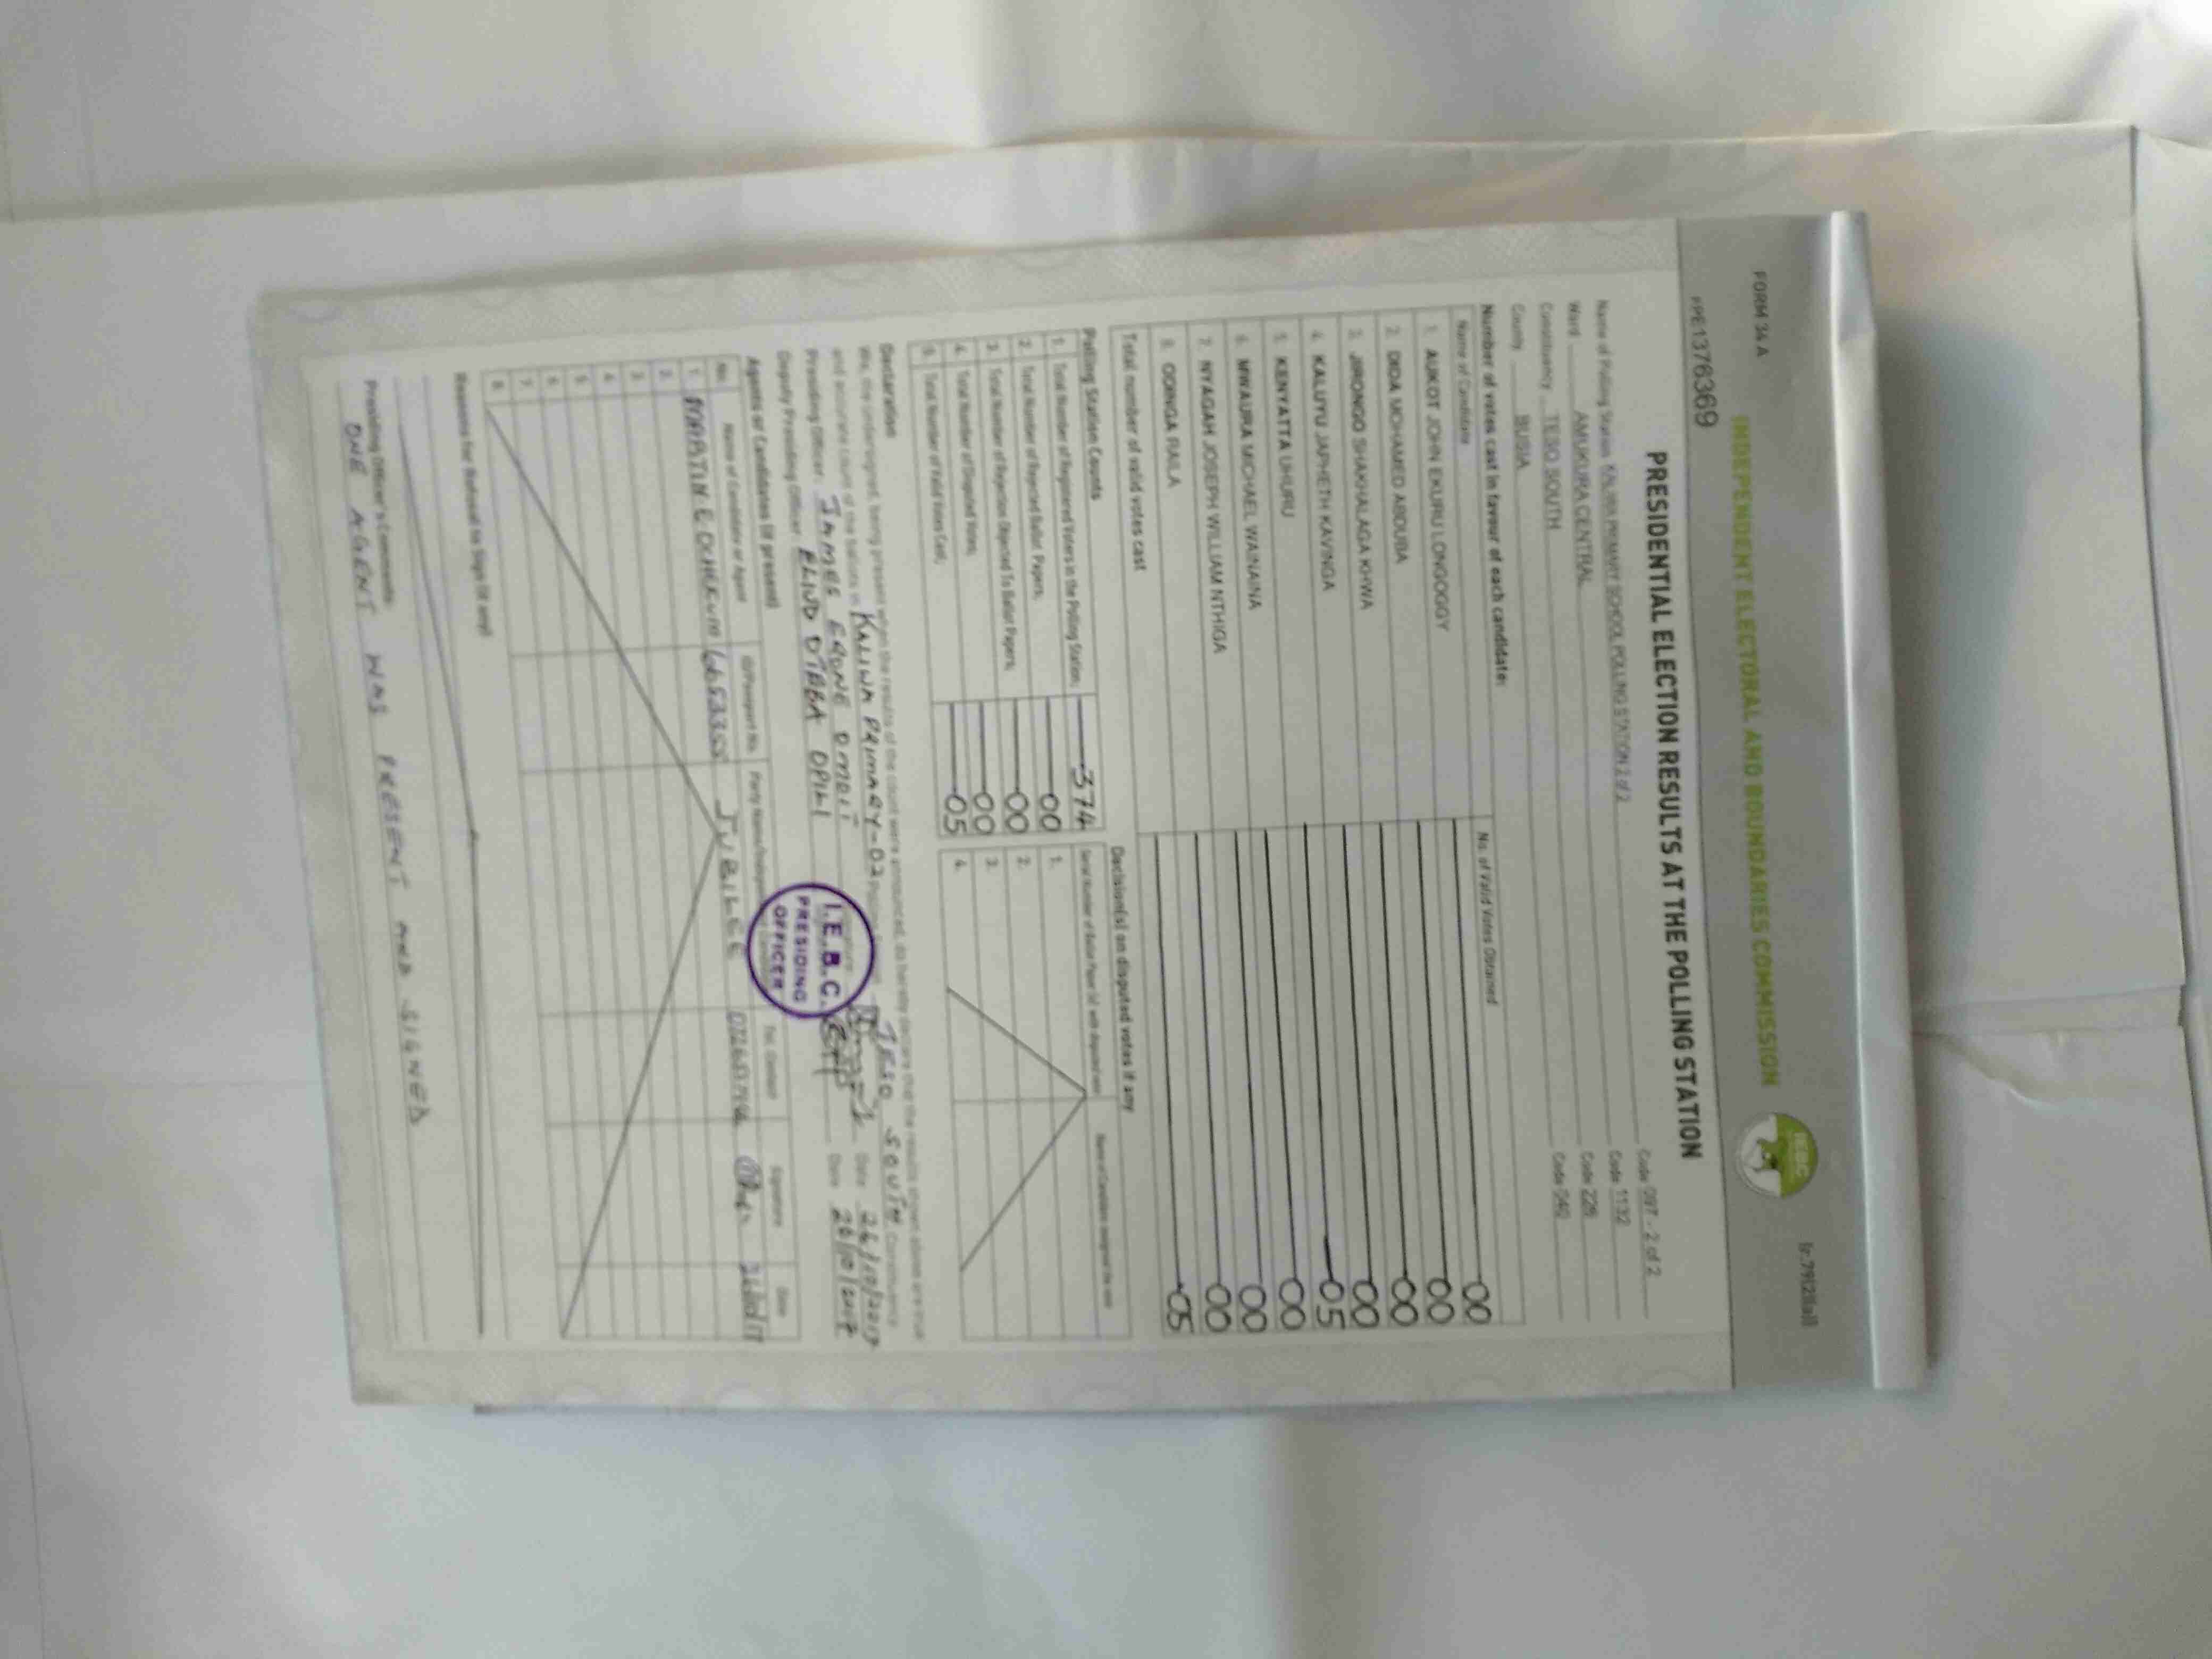 FORM 34 A
INDEPENDENT ELECTORAL AND BOUNDARIES COMMISSION
IEBC
PPE13763369
PRESIDENTIAL ELECTION RESULTS AT THE POLLING STATION
Name of Polling Station KALIWA PRIMARY SCHOOL POLLING STATION 2 of 2 Code 097 - 2 of 2
Ward AMUKURA CENTRAL Code 1132
Constituency TESO SOUTH Code 228
County BUSIA Code 040
Number of votes cast in favour of each candidate:
Name of Candidate No. of Valid Votes Obtained
1. AUKOT JOHN EKURU LONGOGGY 00
2. DIDA MOHAMED ABDUBA 00
3. JIRONGO SHAKHALAGA KHWA 00
4. KALUYU JAPHETH KAVINGA 00
5. KENYATTA UHURU 05
6. MWAURA MICHAEL WAINAINA 00
7. NYAGAH JOSEPH WILLIAM NTHIGA 00
8. ODINGA RAILA 00
Total number of valid votes cast 05
Polling Station Counts
1. Total Number of Registered Voters in the Polling Station; 374
2. Total Number of Rejected Ballot Papers; 00
3. Total Number of Rejection Objected To Ballot Papers; 00
4. Total Number of Disputed Votes; 00
5. Total Number of Valid Votes Cast; 05
Decision(s) on disputed votes if any
1.
2.
3.
4.
Declaration
We, the undersigned, being present when the results of the count were announced, do hereby declare that the results shown above are true
and accurate count of the ballots in KALIWA PRIMARY-02 TESO SOUTH Constituency
Presiding Officer: JAMES Date 26/10/2017
Deputy Presiding Officer Date 26/10/2017
I.E.B.C.
PRESIDING
OFFICER
Agents of Candidates (if present)
No. Name of Candidate or Agent ID/Passport No. Tel. Contact Signature Date
1. JUBILEE
2.
3.
4.
5.
6.
7.
8.
Reasons for Refusal to Sign (if any)
Presiding Officer's Comments:
ONE AGENT WAS PRESENT AND SIGNED